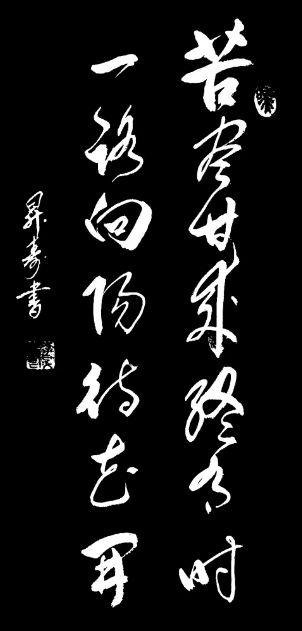 苦尽甘来终有时
一路向阳待花开
昇寿书